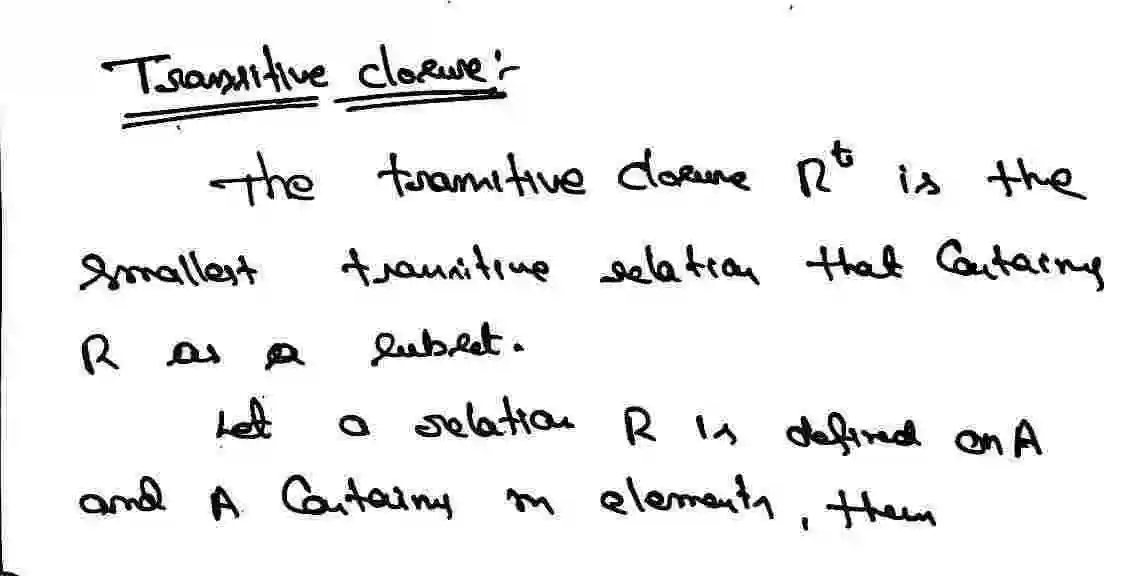 Transitive closure:-
The transitive closure Rᵗ is the
smallest transitive relation that Contains
R as a subset.
Let a relation R is defined on A
and A Contains m elements, then